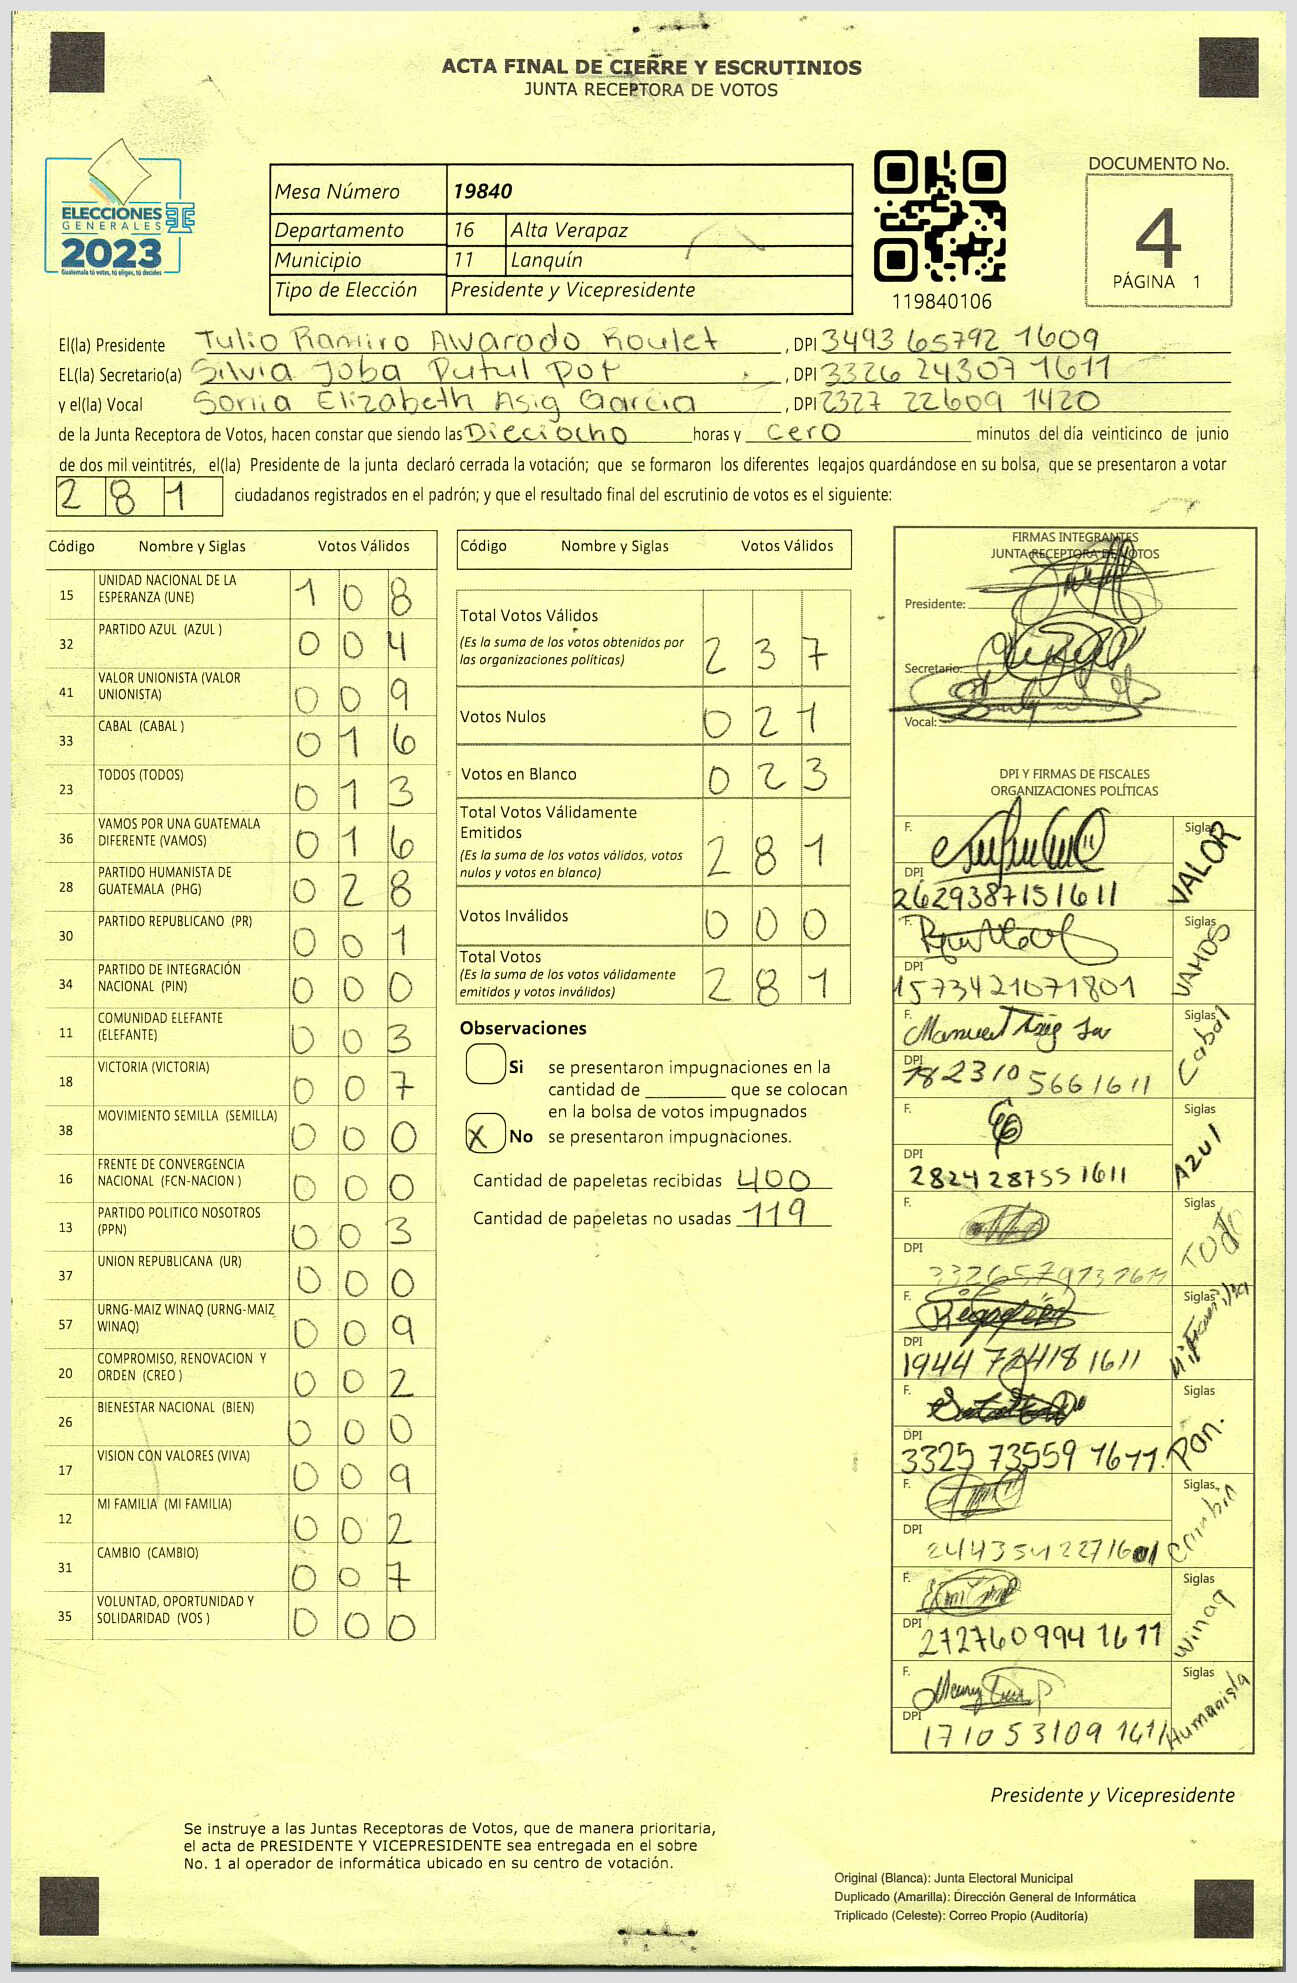 ACTA FINAL DE CIERRE Y ESCRUTINIOS
JUNTA RECEPTORA DE VOTOS
ELECCIONES
GENERALES
2023
Guatemala tú votas, tú eliges, tú decides
Mesa Número 19840
Departamento 16 Alta Verapaz
Municipio 11 Lanquín
Tipo de Elección Presidente y Vicepresidente
119840106
DOCUMENTO No.
4
PÁGINA 1
El(la) Presidente Tulio Ramiro Alvarado Roulet, DPI 3493 65792 1609
EL(la) Secretario(a) Silvia Joba Putul Pop, DPI 3326 24307 1611
y el(la) Vocal Sonia Elizabeth Asig Garcia, DPI 2327 22609 1420
de la Junta Receptora de Votos, hacen constar que siendo las Dieciocho horas y cero minutos del día veinticinco de junio
de dos mil veintitrés, el(la) Presidente de la junta declaró cerrada la votación; que se formaron los diferentes legajos guardándose en su bolsa, que se presentaron a votar
281 ciudadanos registrados en el padrón; y que el resultado final del escrutinio de votos es el siguiente:
Código Nombre y Siglas Votos Válidos
15 UNIDAD NACIONAL DE LA ESPERANZA (UNE) 108
32 PARTIDO AZUL (AZUL ) 004
41 VALOR UNIONISTA (VALOR UNIONISTA) 009
33 CABAL (CABAL ) 016
23 TODOS (TODOS) 013
36 VAMOS POR UNA GUATEMALA DIFERENTE (VAMOS) 016
28 PARTIDO HUMANISTA DE GUATEMALA (PHG) 028
30 PARTIDO REPUBLICANO (PR) 001
34 PARTIDO DE INTEGRACIÓN NACIONAL (PIN) 000
11 COMUNIDAD ELEFANTE (ELEFANTE) 003
18 VICTORIA (VICTORIA) 007
38 MOVIMIENTO SEMILLA (SEMILLA) 000
16 FRENTE DE CONVERGENCIA NACIONAL (FCN-NACION ) 000
13 PARTIDO POLITICO NOSOTROS (PPN) 003
37 UNION REPUBLICANA (UR) 000
57 URNG-MAIZ WINAQ (URNG-MAIZ WINAQ) 009
20 COMPROMISO, RENOVACION Y ORDEN (CREO ) 002
26 BIENESTAR NACIONAL (BIEN) 000
17 VISION CON VALORES (VIVA) 009
12 MI FAMILIA (MI FAMILIA) 002
31 CAMBIO (CAMBIO) 007
35 VOLUNTAD, OPORTUNIDAD Y SOLIDARIDAD (VOS ) 000
Código Nombre y Siglas Votos Válidos
Total Votos Válidos 237
(Es la suma de los votos obtenidos por
las organizaciones políticas)
Votos Nulos 021
Votos en Blanco 023
Total Votos Válidamente
Emitidos 281
(Es la suma de los votos válidos, votos
nulos y votos en blanco)
Votos Inválidos 000
Total Votos 281
(Es la suma de los votos válidamente
emitidos y votos inválidos)
Observaciones
Si se presentaron impugnaciones en la
cantidad de ________ que se colocan
en la bolsa de votos impugnados
X No se presentaron impugnaciones.
Cantidad de papeletas recibidas 400
Cantidad de papeletas no usadas 119
FIRMAS INTEGRANTES
JUNTA RECEPTORA DE VOTOS
Presidente:
Secretario:
Vocal:
DPI Y FIRMAS DE FISCALES
ORGANIZACIONES POLÍTICAS
F. Siglas VALOR
DPI 2629387151611
F. Siglas VAMOS
DPI 1573421071801
F. Manuel Siglas Cabal
DPI 782310 5661611
F. Siglas AZUl
DPI 2824 28755 1611
F. Siglas TODO
DPI
F. Siglas Mi Familia
DPI 1944 72418 1611
F. Siglas Pan.
DPI 3325 73559 1611.
F. Siglas Cambio
DPI
F. Siglas Winaq
DPI 272760994 1611
F. Siglas Humanista
DPI 1710 53109 1611
Presidente y Vicepresidente
Se instruye a las Juntas Receptoras de Votos, que de manera prioritaria,
el acta de PRESIDENTE Y VICEPRESIDENTE sea entregada en el sobre
No. 1 al operador de informática ubicado en su centro de votación.
Original (Blanca): Junta Electoral Municipal
Duplicado (Amarilla): Dirección General de Informática
Triplicado (Celeste): Correo Propio (Auditoría)